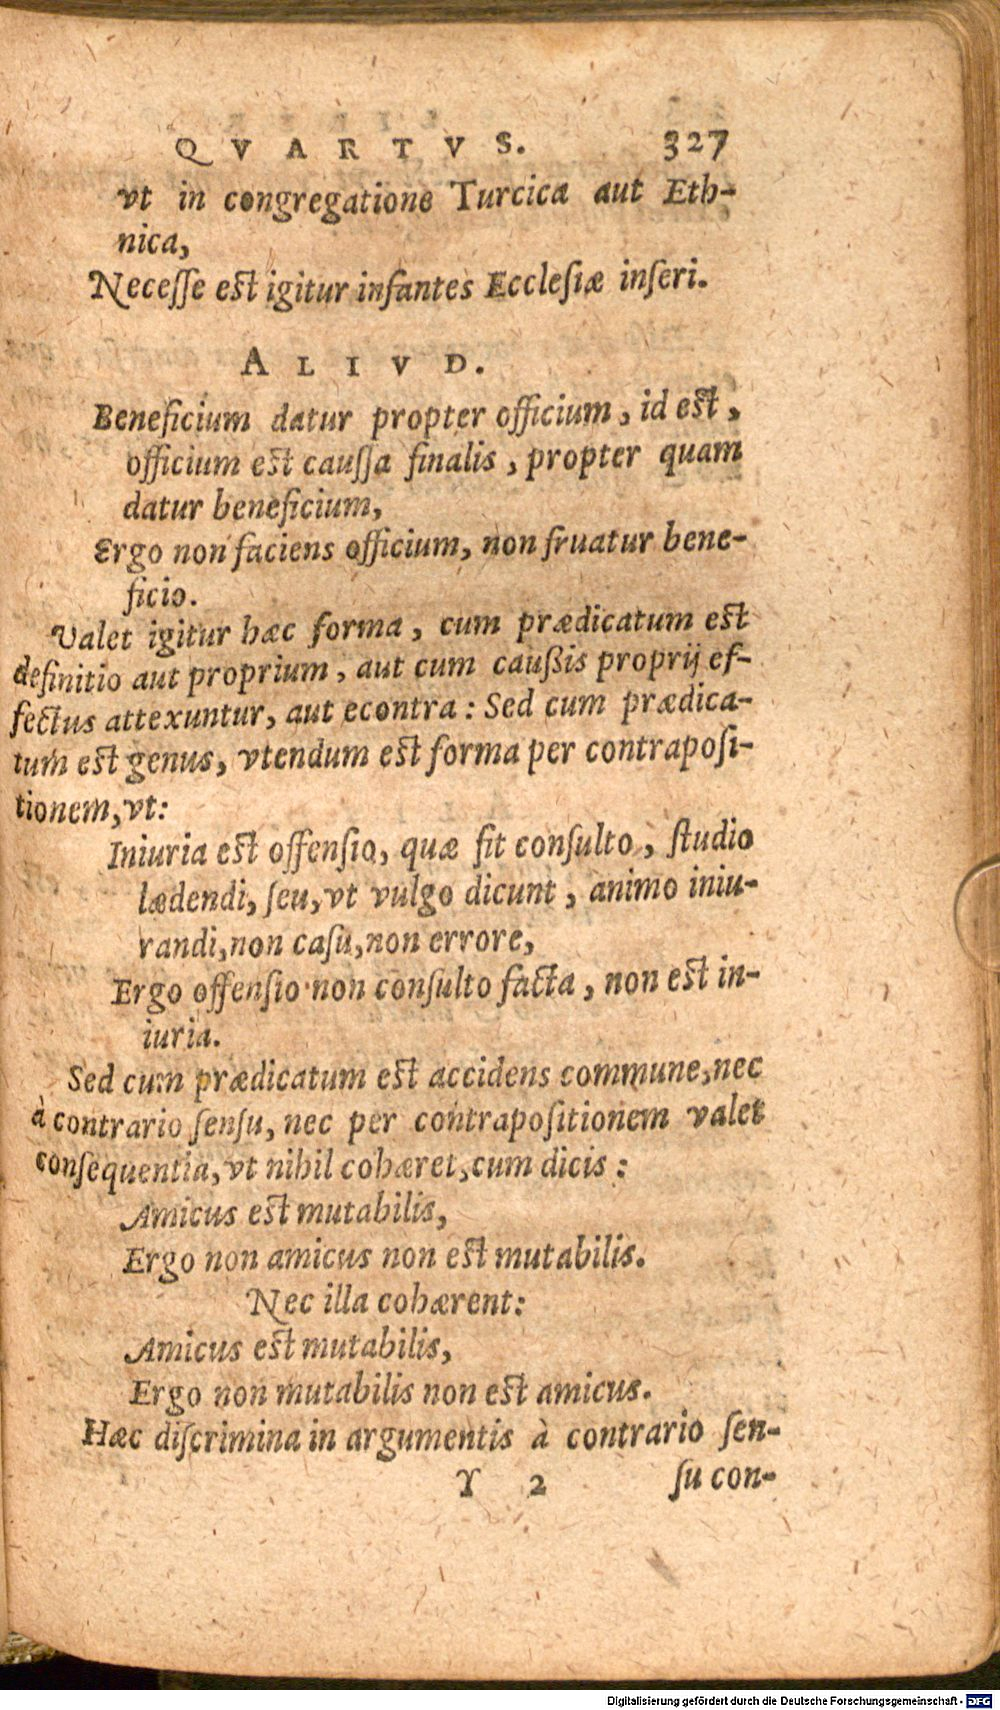 QVARTVS. 327
vt in congregatione Turcica aut Eth-
nica,
Necesse est igitur infantes Ecclesiæ inseri.
ALIVD.
Beneficium datur propter officium, id est,
officium est caussa finalis, propter quam
datur beneficium,
Ergo non faciens officium, non fruatur bene-
ficio.
Valet igitur hæc forma, cum prædicatum est
definitio aut proprium, aut cum außis proprij ef-
fectus attexuntur, aut econtra: Sed cum prædica-
tum est genus, vtendum est forma per contraposi-
tionem, vt:
Iniuria est offensio, quæ fit consulto, studio
lædendi, seu, vt vulgo dicunt, animo iniu-
randi, non casu, non errore,
Ergo offensio non consulto facta, non est in-
iuria.
Sed cum prædicatum est accidens commune, nec
à contrario sensu, nec per contrapositionem valet
consequentia, vt nihil cohæret, cum dicis:
Amicus est mutabilis,
Ergo non amicus non est mutabilis.
Nec illa cohærent:
Amicus est mutabilis,
Ergo non mutabilis non est amicus.
Hæc discrimina in argumentis à contrario sen-
Y 2 su con-
Digitalisierung gefördert durch die Deutsche Forschungsgemeinschaft - DFG